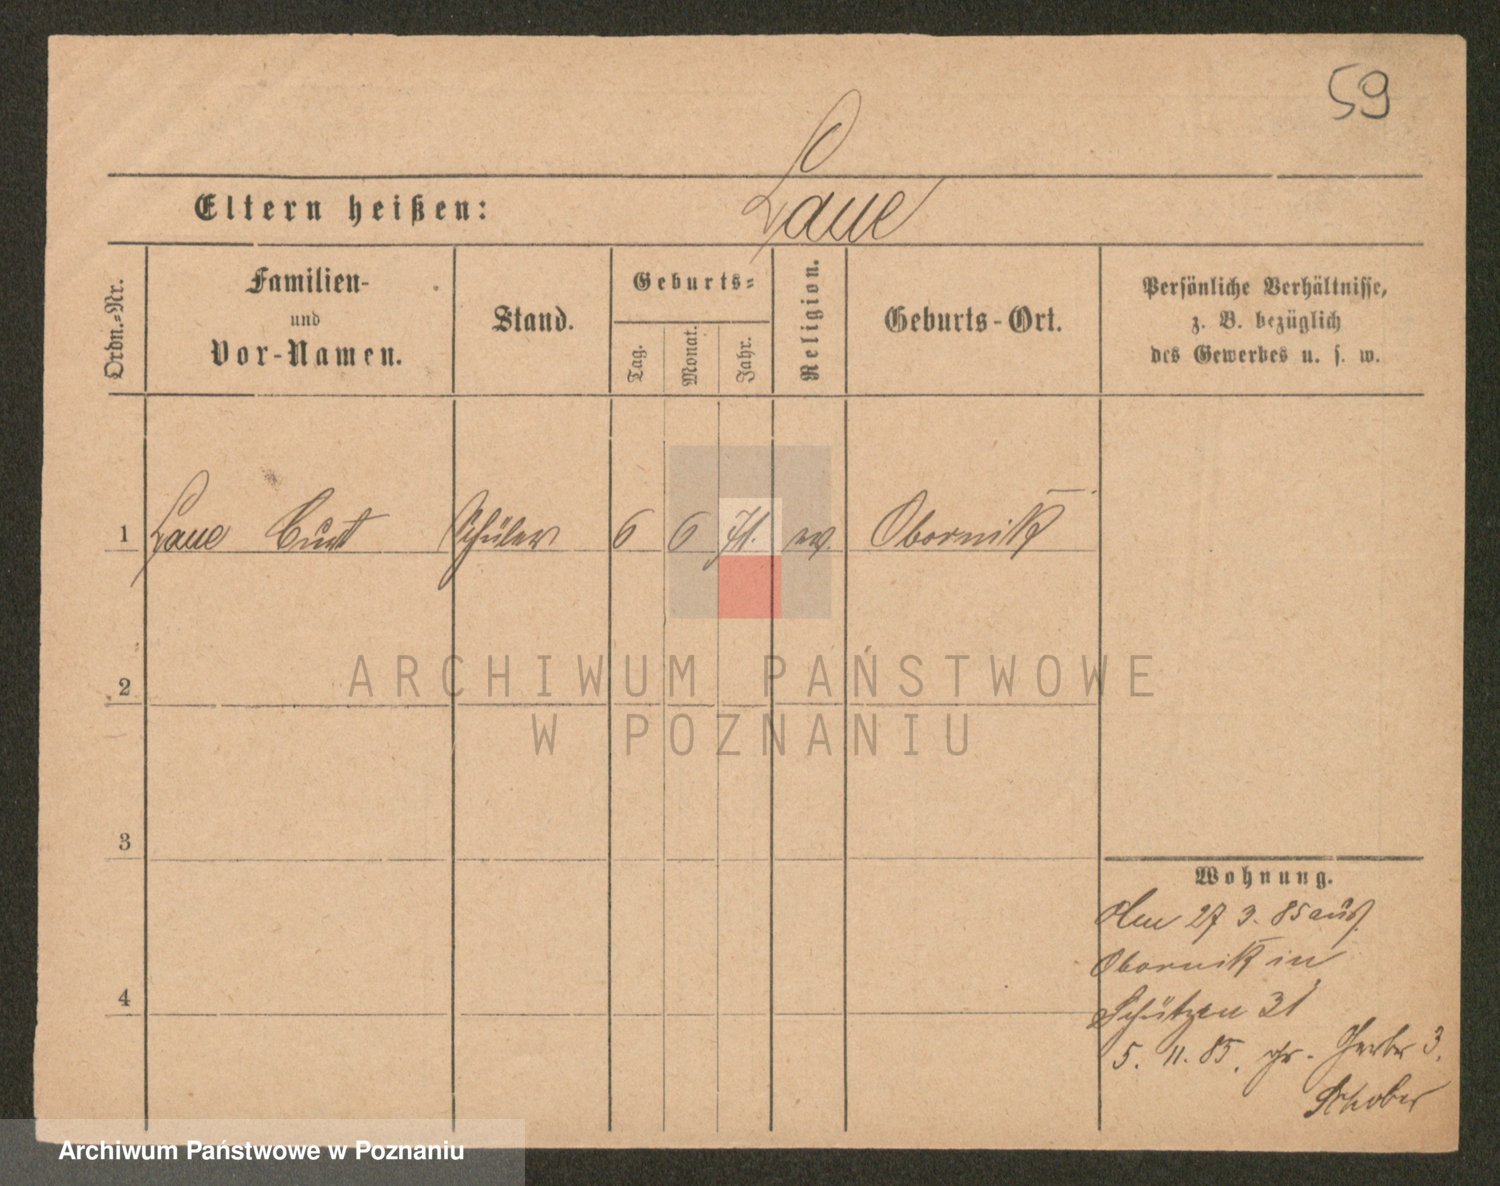 59
Eltern heißen: Laue
Ordn.-Nr.
Familien-
und
Vor-Namen.
Stand.
Geburts-
Tag.
Monat.
Jahr.
Religion.
Geburts-Ort.
Persönliche Verhältnisse,
z. B. bezüglich
des Gewerbes u. s. w.
1 Laue Curt Schüler 6 6 71. ev. Obornik
2
3
4
Wohnung.
Am 27 3. 85 aus
Obornik in
Schützen 31
5. 11. 85. gr. Gerber 3.
Schober
ARCHIWUM PAŃSTWOWE
W POZNANIU
Archiwum Państwowe w Poznaniu